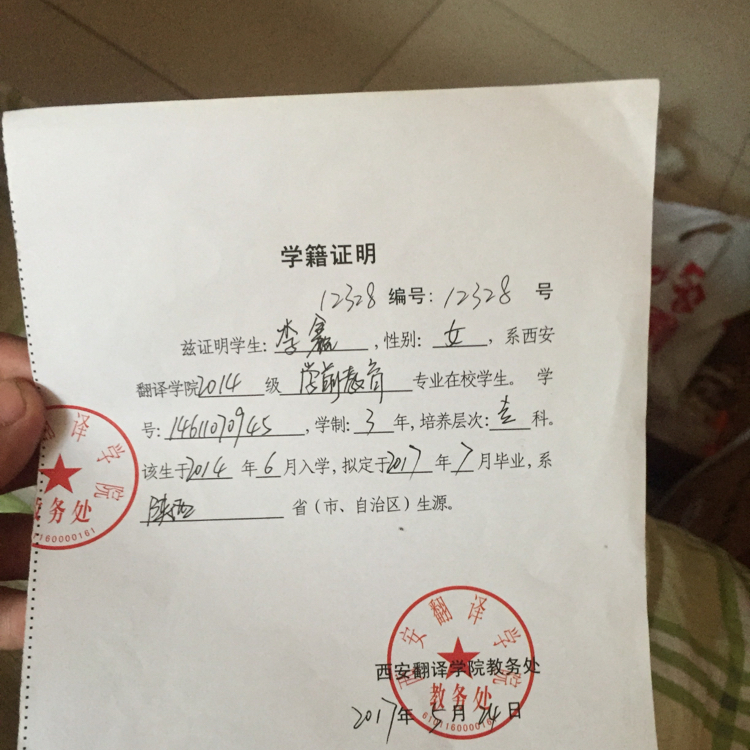 学籍证明
12328 编号: 12328 号
兹证明学生: 李 , 性别: 女 , 系西安
翻译学院2014 级 学前教育 专业在校学生。 学
号: 1461070945 , 学制: 3 年, 培养层次: 专 科。
该生于2014 年 6 月入学, 拟定于2017 年 7 月毕业, 系
陕西 省（市、自治区）生源。
翻译学院
教务处
6101160000161
西安翻译学院
西安翻译学院教务处
教务处
2017年 5 月 24 日